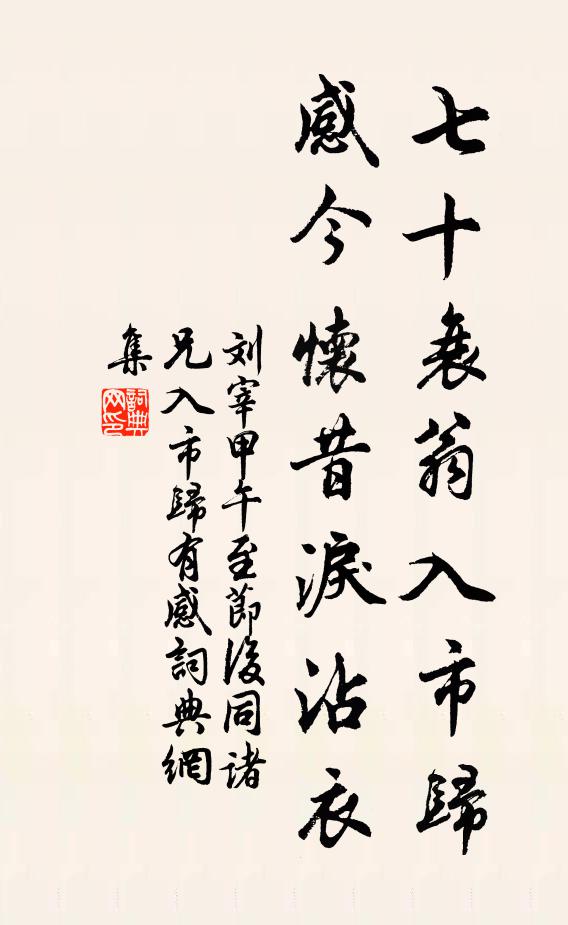 七十衰翁入市歸
感今懷昔淚沾衣
刘宰甲午至節後同諸
兄入市歸有感詞典網
集
詞典网印